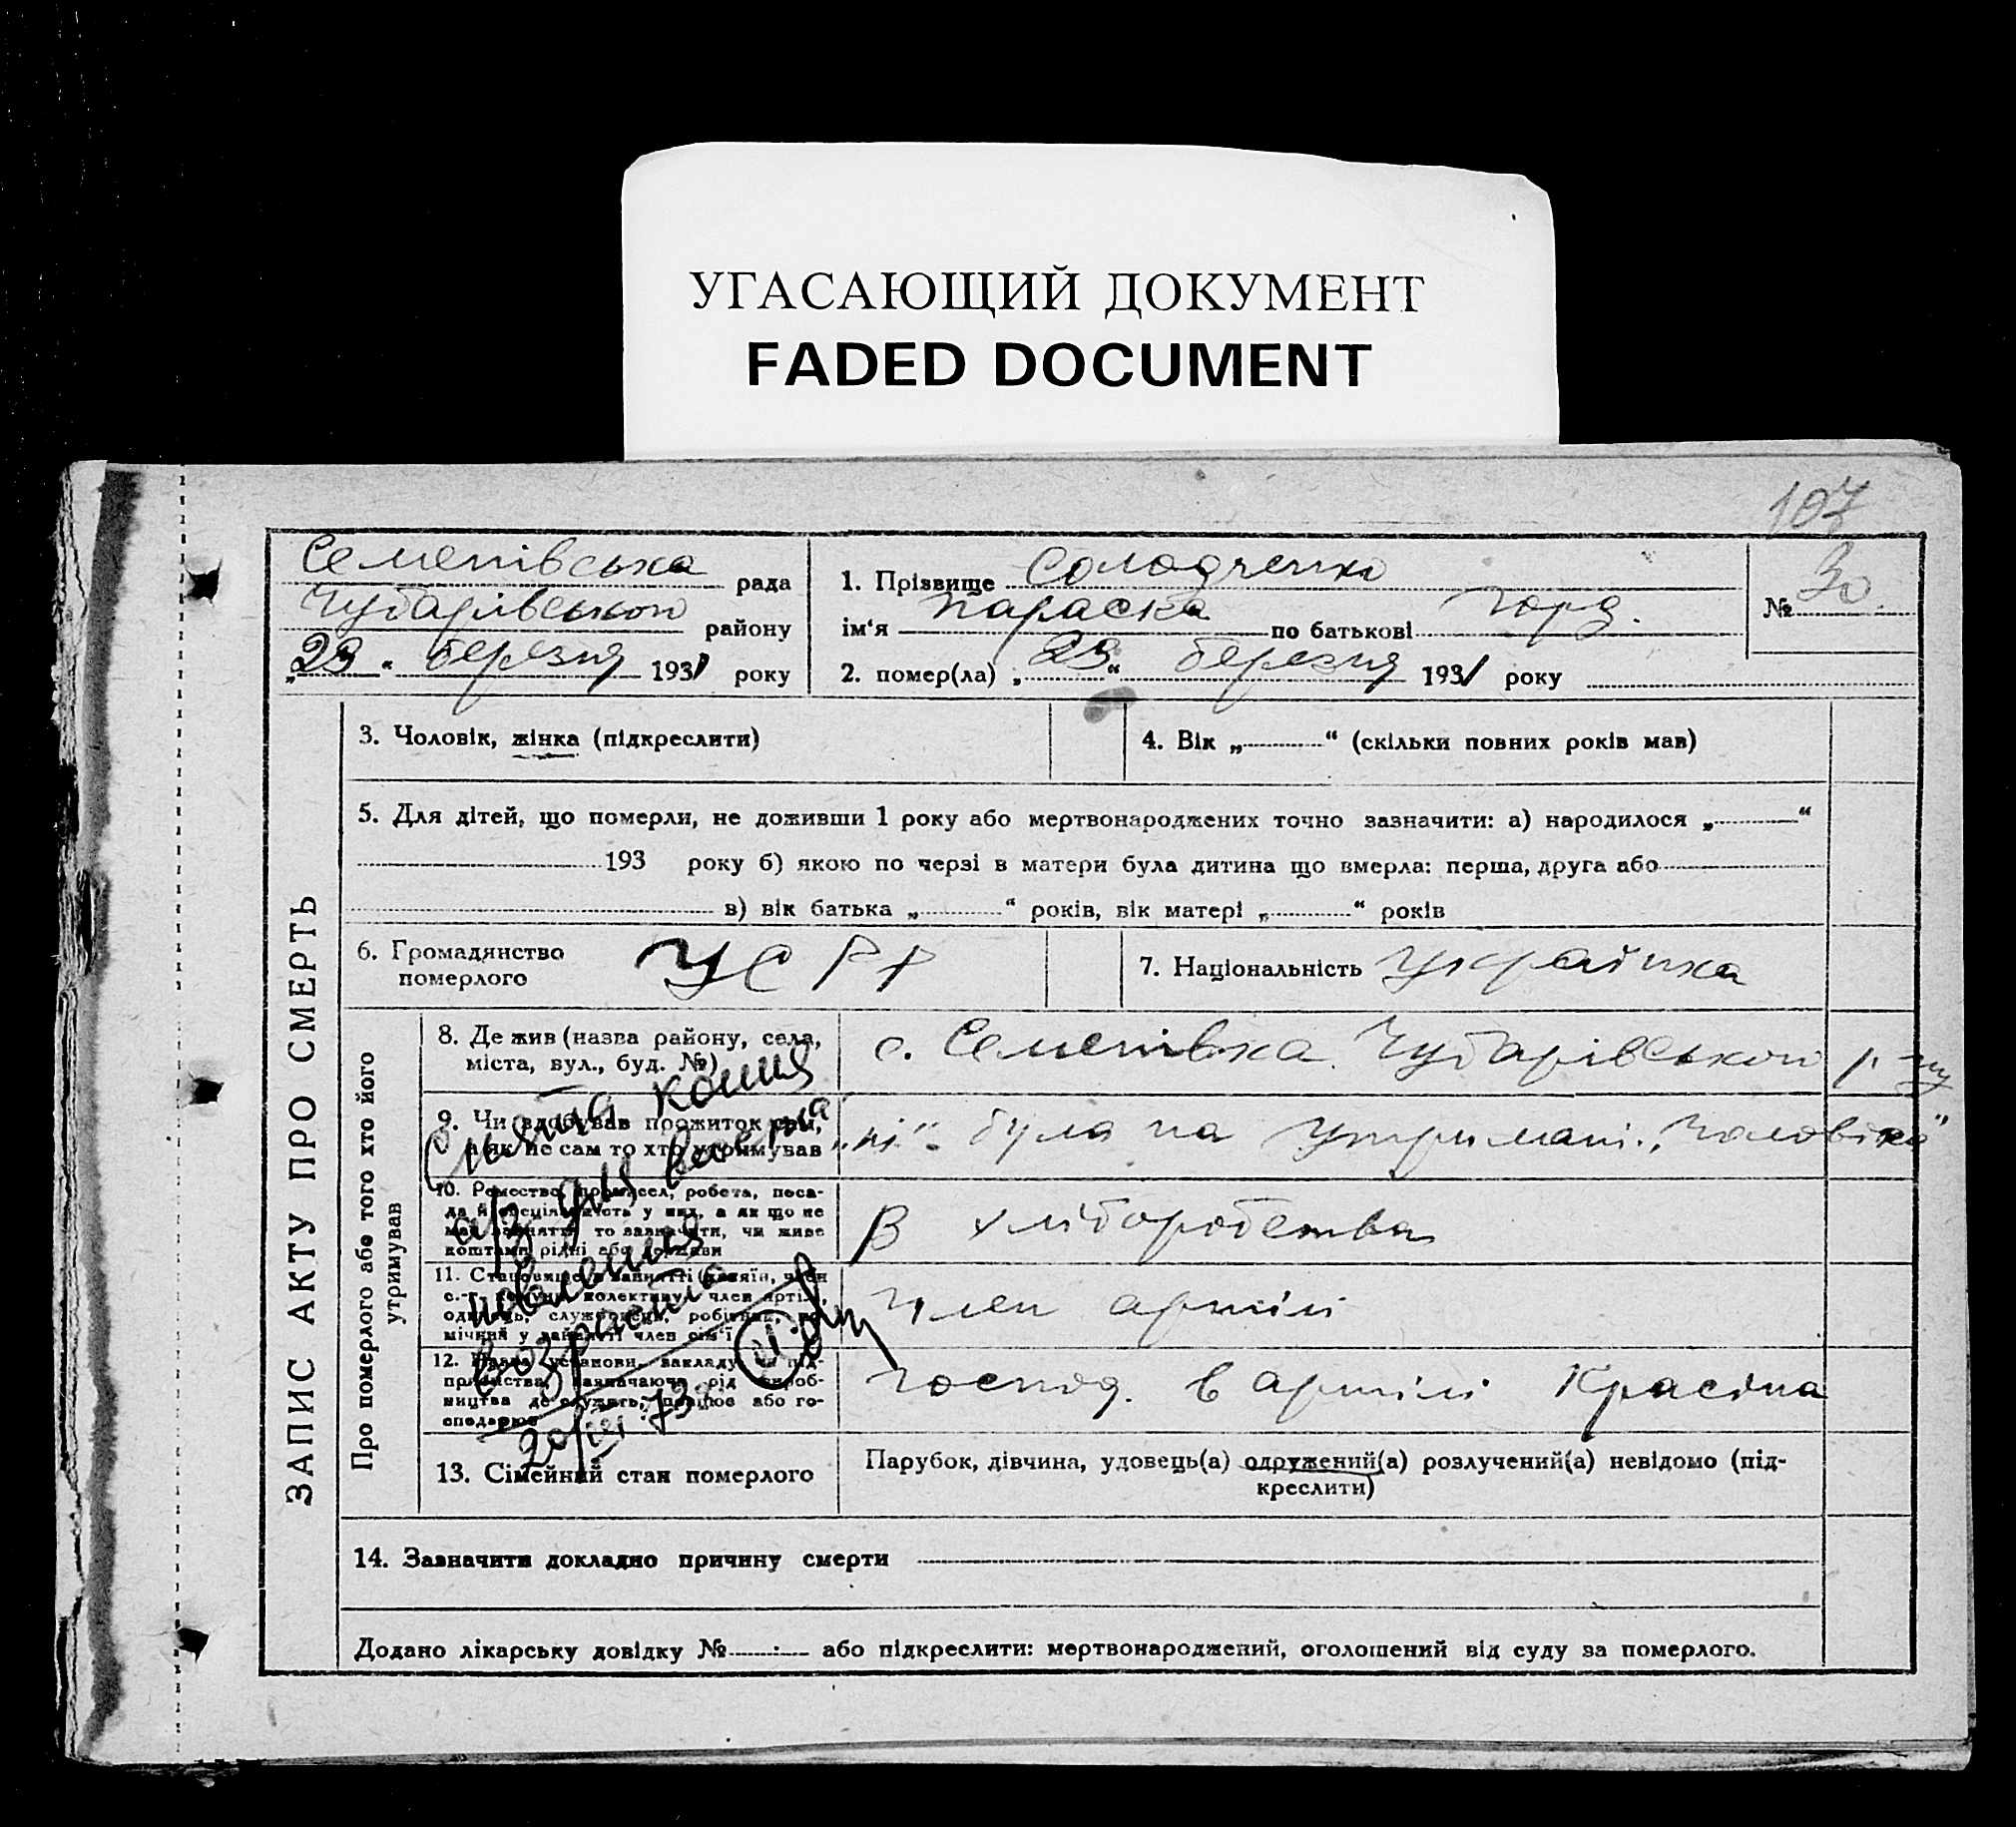 УГАСАЮЩИЙ ДОКУМЕНТ
FADED DOCUMENT
107
Семенівська рада
Чубарівського району
„29“ березня 1931 року
1. Прізвище Солодченко
ім‘я Параска по батькові Горд.
2. помер(ла) „29“ березня 1931 року
№ 30.
ЗАПИС АКТУ ПРО СМЕРТЬ
3. Чоловік, жінка (підкреслити)
4. Вік „“ (скільки повних років мав)
5. Для дітей, що померли, не доживши 1 року або мертвонароджених точно зазначити: а) народилося „“
193 року б) якою по черзі в матери була дитина що вмерла: перша, друга або
в) вік батька „“ років, вік матері „“ років
6. Громадянство
померлого
УСРР
7. Національність Українка
Про померлого або того хто його
утримував
8. Де жив (назва району, села,
міста, вул., буд. №)
с. Семенівка Чубарівського р-ну
9. Чи здобував прожиток сам,
а як не сам то хто утримував
„ні“ була на утримані „чоловіка“
10. Ремество, промисел, робота, поса-
да й спеціяльність у них, а як що не
мав заняття то зазначити, чи живе
коштами рідні або держави
В хліборобства
11. Становище в занятті (хазяїн, член
с.-г. комуни, колективу, член артілі,
одинець, службовець, робітник, по-
мічний у занятті член сім‘ї
Член артілі
12. Назва установи, закладу чи під-
приємства, зазначаючи рід вироб-
ництва де служить, працює або го-
сподарює
господ. в артілі Красіна
Снята копия
для
возраста
73
13. Сімейний стан померлого
Парубок, дівчина, удовець(а) одружений(а) розлучений(а) невідомо (під-
креслити)
14. Зазначити докладно причину смерти
Додано лікарську довідку № або підкреслити: мертвонароджений, оголошений від суду за померлого.